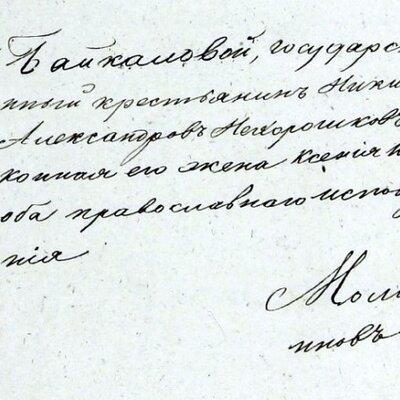 Байкаловой, государс
нный крестьянинъ Ники
Александровъ Нехорошков
конная его жена Ксенія п
оба православнаго испов
нія
Мол
иновъ